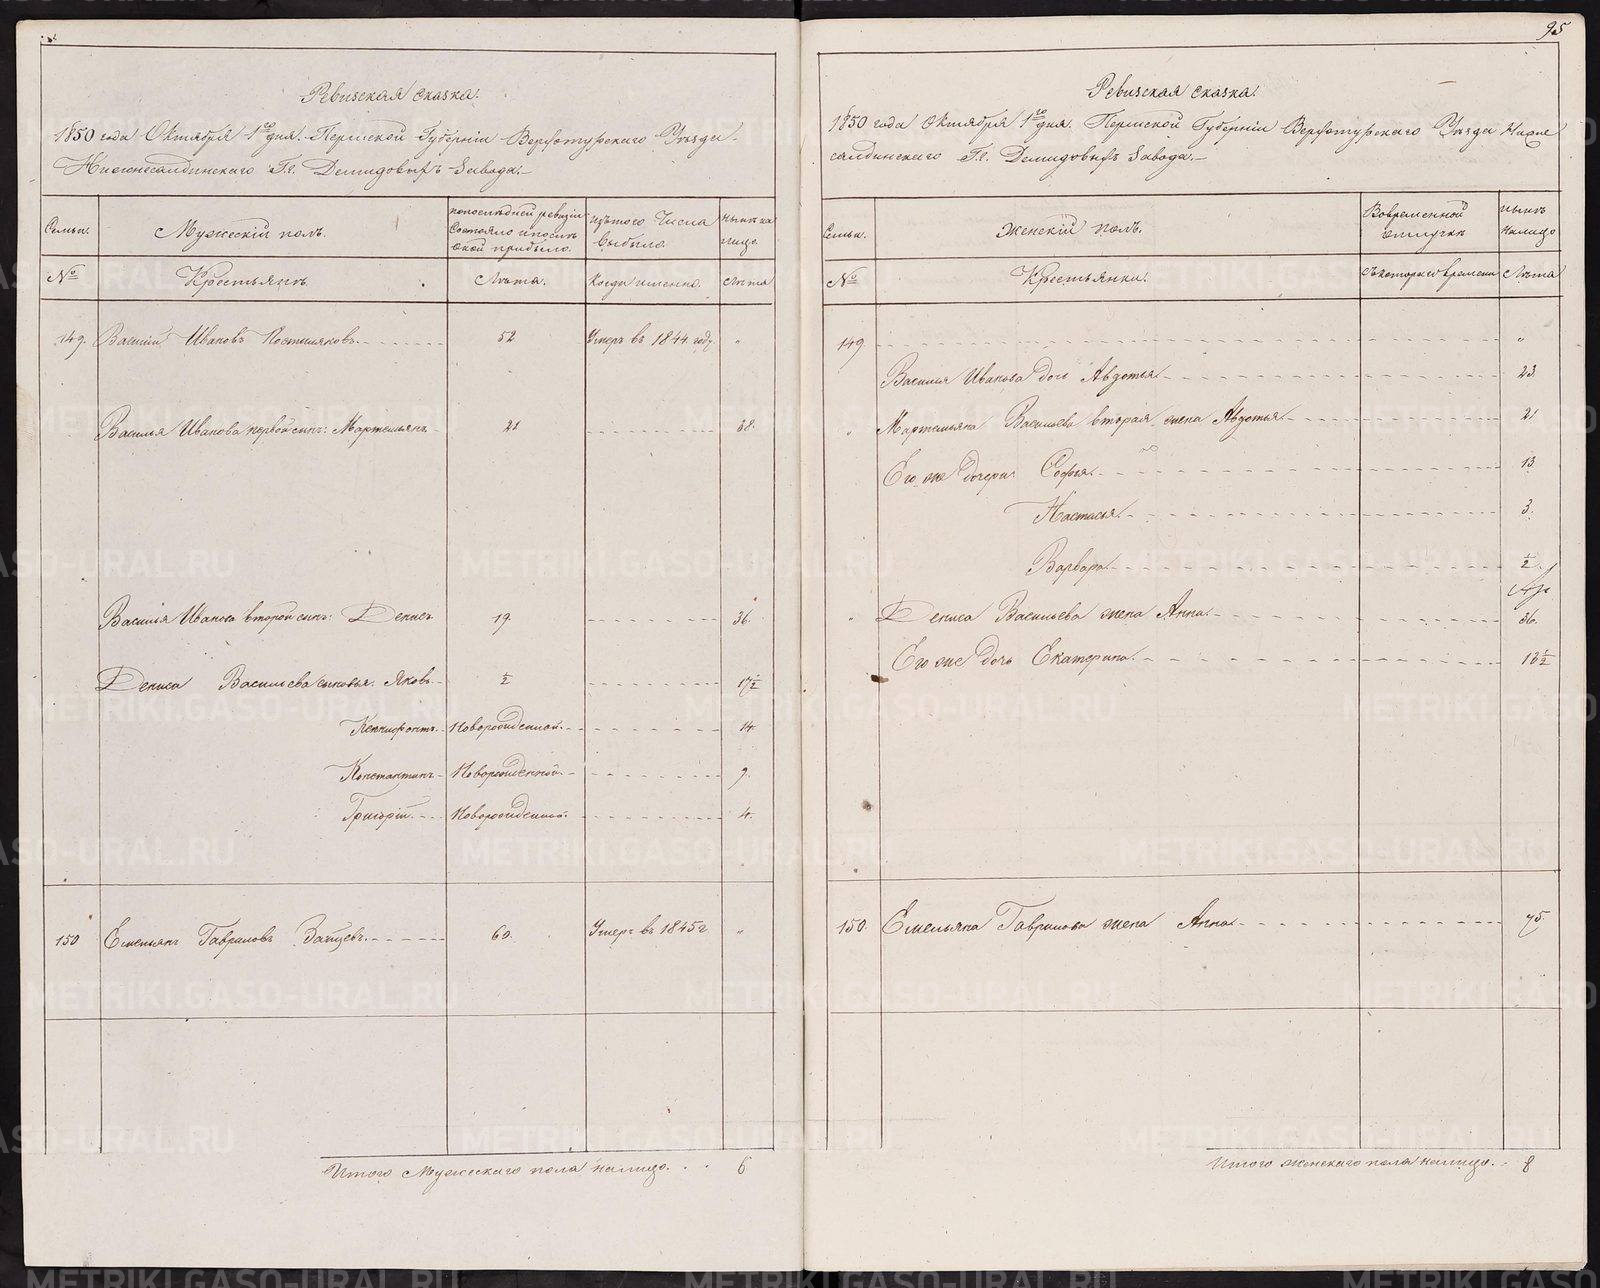 95
Ревизская сказка.
1850 года Октября 1го дня. Пермской Губерніи Верхотурскаго Уѣзда
Нижнесалдинскаго Г.г. Демидовыхъ Завода.
Семьи.
Мужескій полъ.
По последней ревизіи
состояло и после
оной прибыло.
Изъ того Числа
выбыло.
Нынѣ на
лицо.
№
Крестьянъ
Лѣта.
Когда именно.
Лѣта
149. Василій Ивановъ Постыляковъ 52 Умеръ въ 1844 году "
Василья Иванова первой сынъ: Мартемьянъ 21 38.
Василья Иванова второй сынъ: Денисъ 19 36.
Дениса Васильева сыновья: Яковъ 1/2 17 1/2
Ксенифонтъ Новорожденной 14
Константинъ Новорожденной 9.
Григорій Новорожденной 4.
150 Емельянъ Гавриловъ Зайцевъ 60. Умеръ въ 1845 г "
Итого Мужескаго пола налицо. 6
Ревизская сказка.
1850 года Октября 1го дня. Пермской Губерніи Верхотурскаго Уѣзда Нижне
салдинскаго Г.г. Демидовыхъ Завода.
Семьи.
Женскій полъ.
Во временной
отлучке
Нынѣ
налицо
№
Крестьянки.
Съ котораго времени
Лѣта
149 "
Василья Иванова дочь Авдотья 23.
" Мартемьяна Васильева вторая жена Авдотья 21
Его же дочери Софья 13.
Настасья 3.
Варвара 1/2
" Дениса Васильева жена Анна 36.
Его же дочь Екатерина 13 1/2
150. Емельяна Гаврилова жена Анна 75.
Итого женскаго пола налицо. 8
METRIKI.GASO-URAL.RU